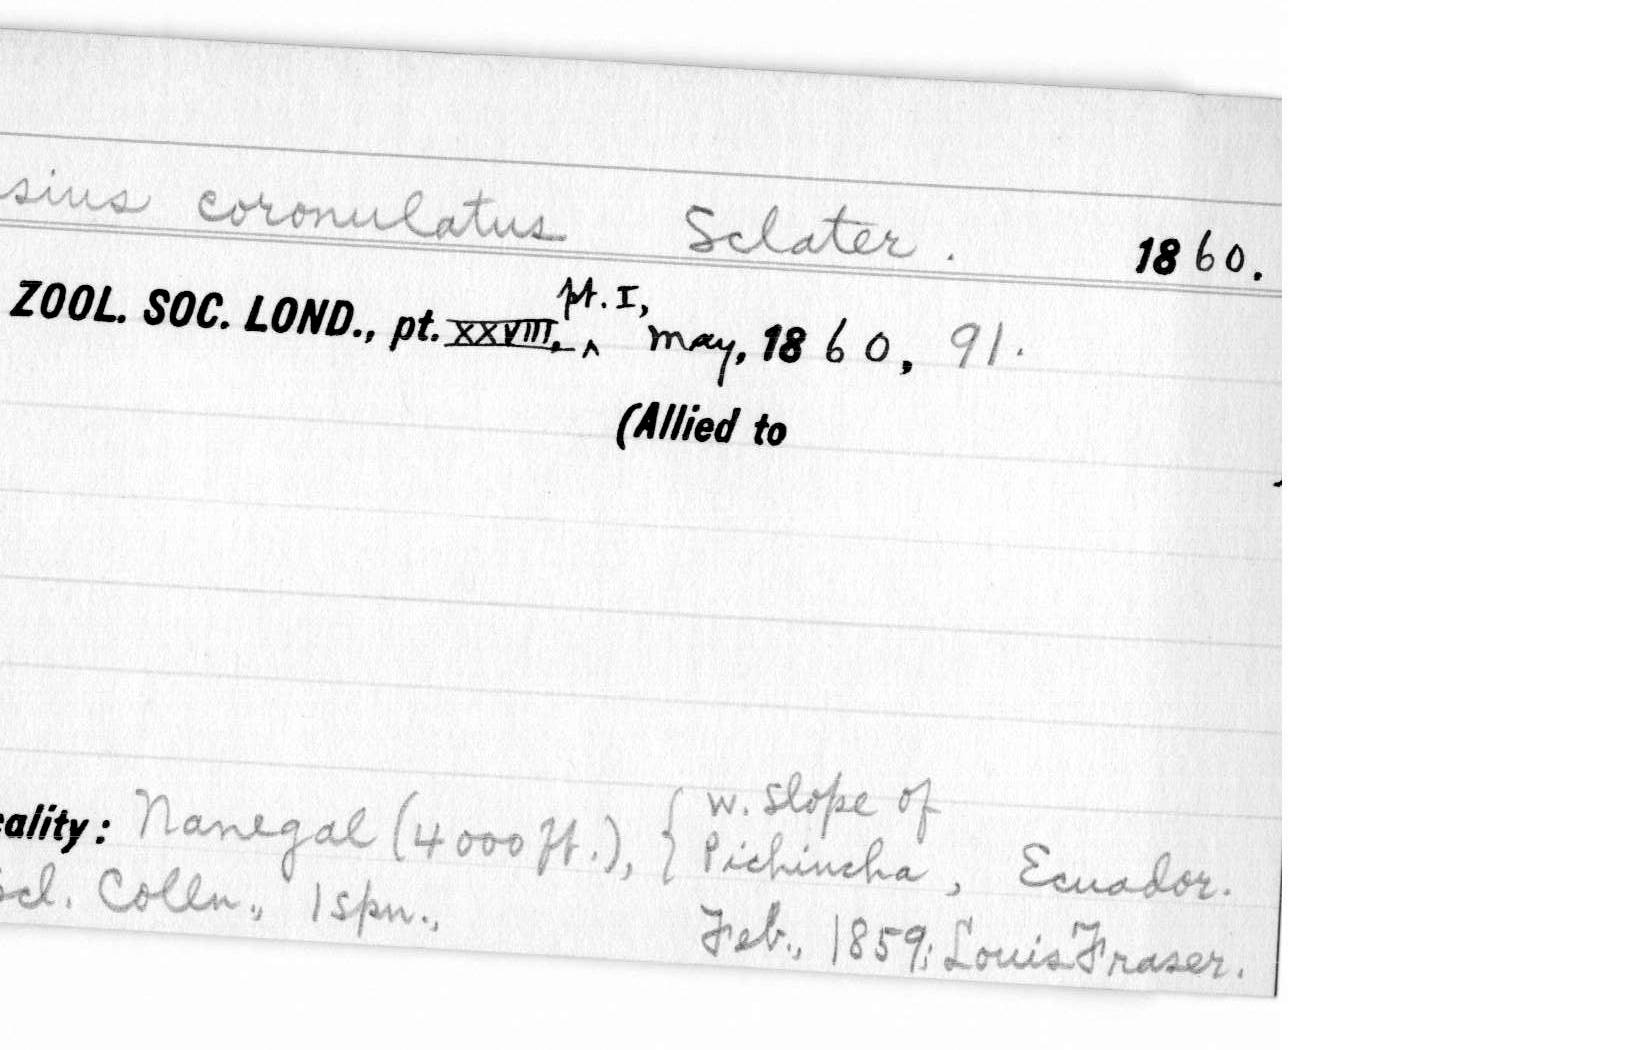 sius coronulatus Sclater. 1860.
ZOOL. SOC. LOND., pt. XXVIII, ^ pt. I, May, 1860, 91.
(Allied to
ality: Nanegal (4000 ft.), { W. slope of
Pichincha, Ecuador.
Scl. Colln., 1 spn., Feb., 1859; Louis Fraser.